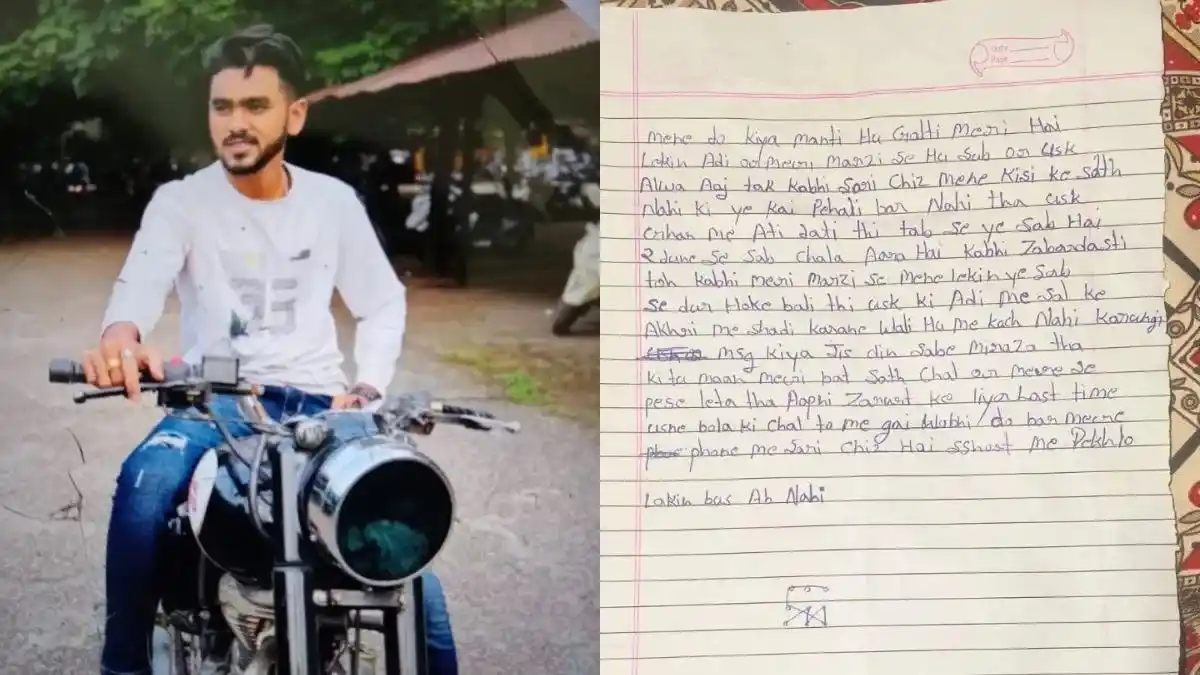 mene do kiya manti Hu Galti Meri Hai
Lekin Adi or meri marzi se Hu sab or Usk
Alwa Aaj tak kabhi Sari Chiz mene kisi ke sath
Nahi ki ye kai Pehali bar Nahi tha usk
Me Ati Jati thi tab se ye sab Hai
2 se sab chala Aara Hai kabhi Zabardasti
toh kabhi meri Marzi se mene lekin ye sab
se dur Hoke bali thi usk ki Adi me sal ke
Akhri me shadi karane wali Hu me kach Nahi karungi
msg kiya Jis din sabe tha
ki tu maan meri bat sath chal or mere se
pese leta tha Aaphi Zarurt ke liye Last time
usne bola ki chal to me gai do bar meene
phone me sari chiz Hai me Dekhlo
Lakin bas Ab Nahi